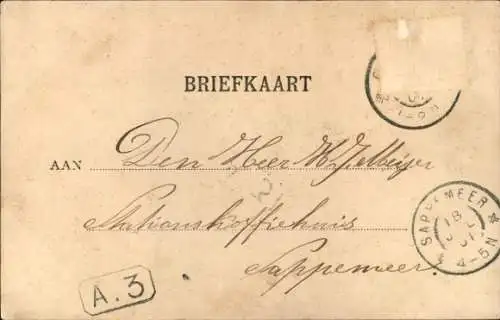 BRIEFKAART
AAN Den Heer
Stationskoffiehuis
Sappemeer
SAPPEMEER
18
4-5N
A.3